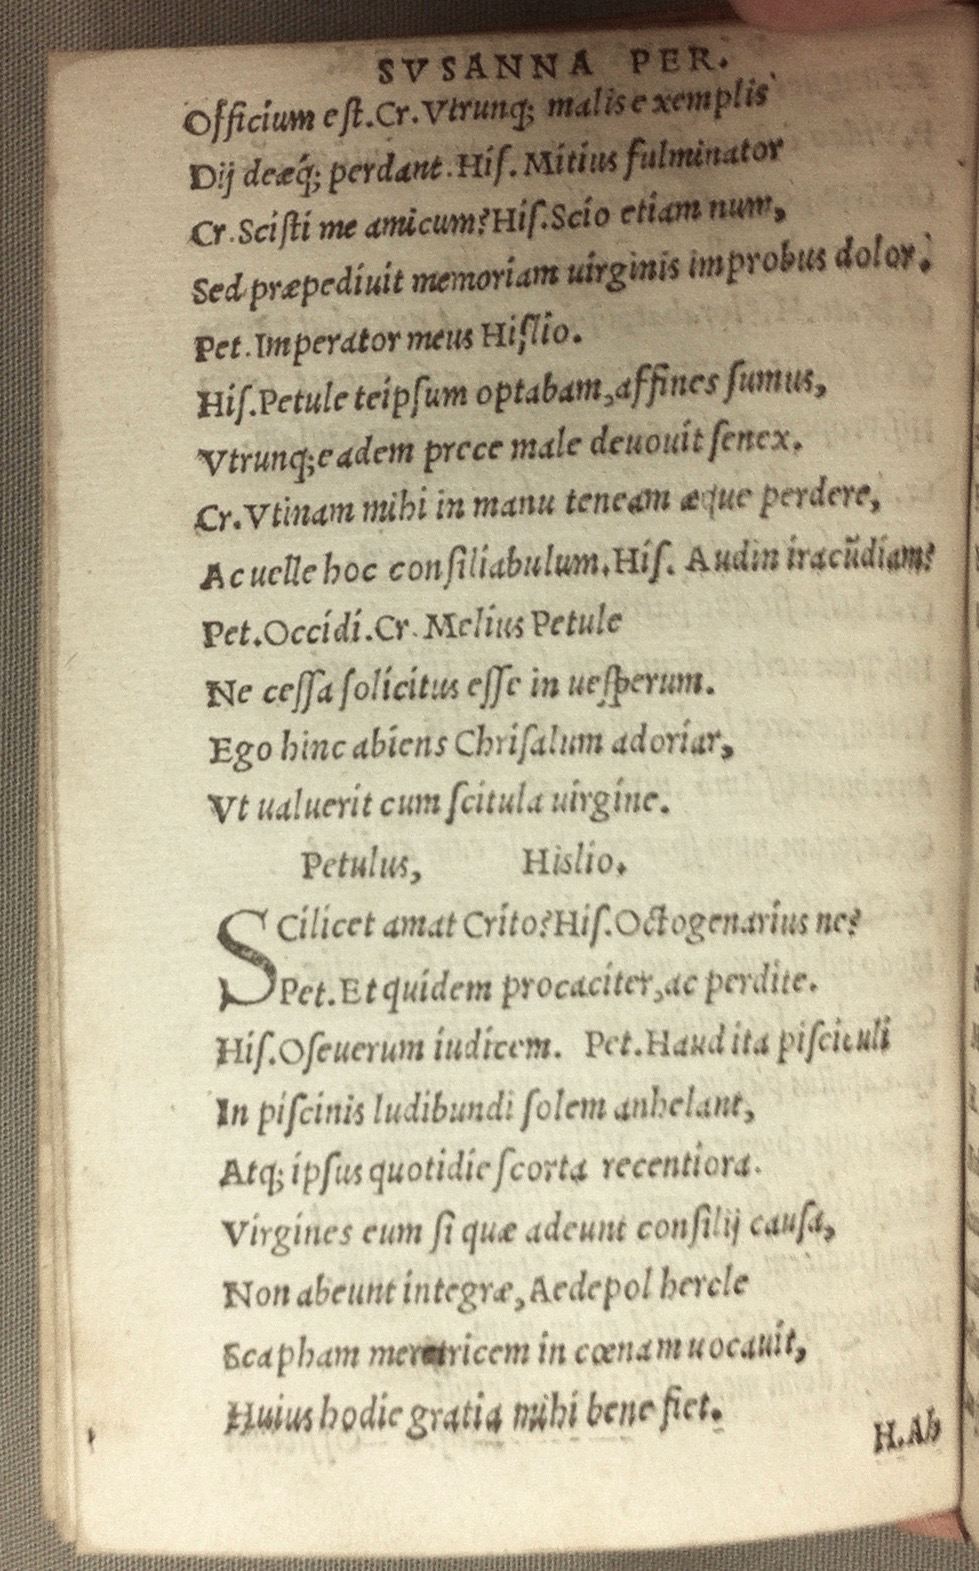 SVSANNA PER.
Officium eſt.Cr.Vtrunq; malis exemplis
Dij deæq́; perdant.Hiſ. Mitius fulminator
Cr.Sciſti me amicum?Hiſ.Scio etiam num,
Sed præpediuit memoriam uirginis improbus dolor.
Pet.Imperator meus Hiſlio.
Hiſ.Petule teipſum optabam,affines ſumus,
Vtrunq;eadem prece male deuouit ſenex.
Cr.Vtinam mihi in manu teneam æque perdere,
Ac uelle hoc conſiliabulum.Hiſ. Audin iracũdiam?
Pet.Occidi.Cr.Melius Petule
Ne ceſſa ſolicitus eſſe in ueſperum.
Ego hinc abiens Chriſalum adoriar,
Vt ualuerit cum ſcitula uirgine.
Petulus, Hislio.
SCilicet amat Crito?Hiſ.Octogenarius ne?
Pet.Et quidem procaciter,ac perdite.
Hiſ.O ſeuerum iudicem. Pet.Haud ita piſciculi
In piſcinis ludibundi ſolem anhelant,
Atq; ipſus quotidie ſcorta recentiora.
Virgines eum ſi quæ adeunt conſilij cauſa,
Non abeunt integræ,Aedepol hercle
Scapham meretricem in cœnam uocauit,
Huius hodie gratia mihi bene fiet.
H.Ab